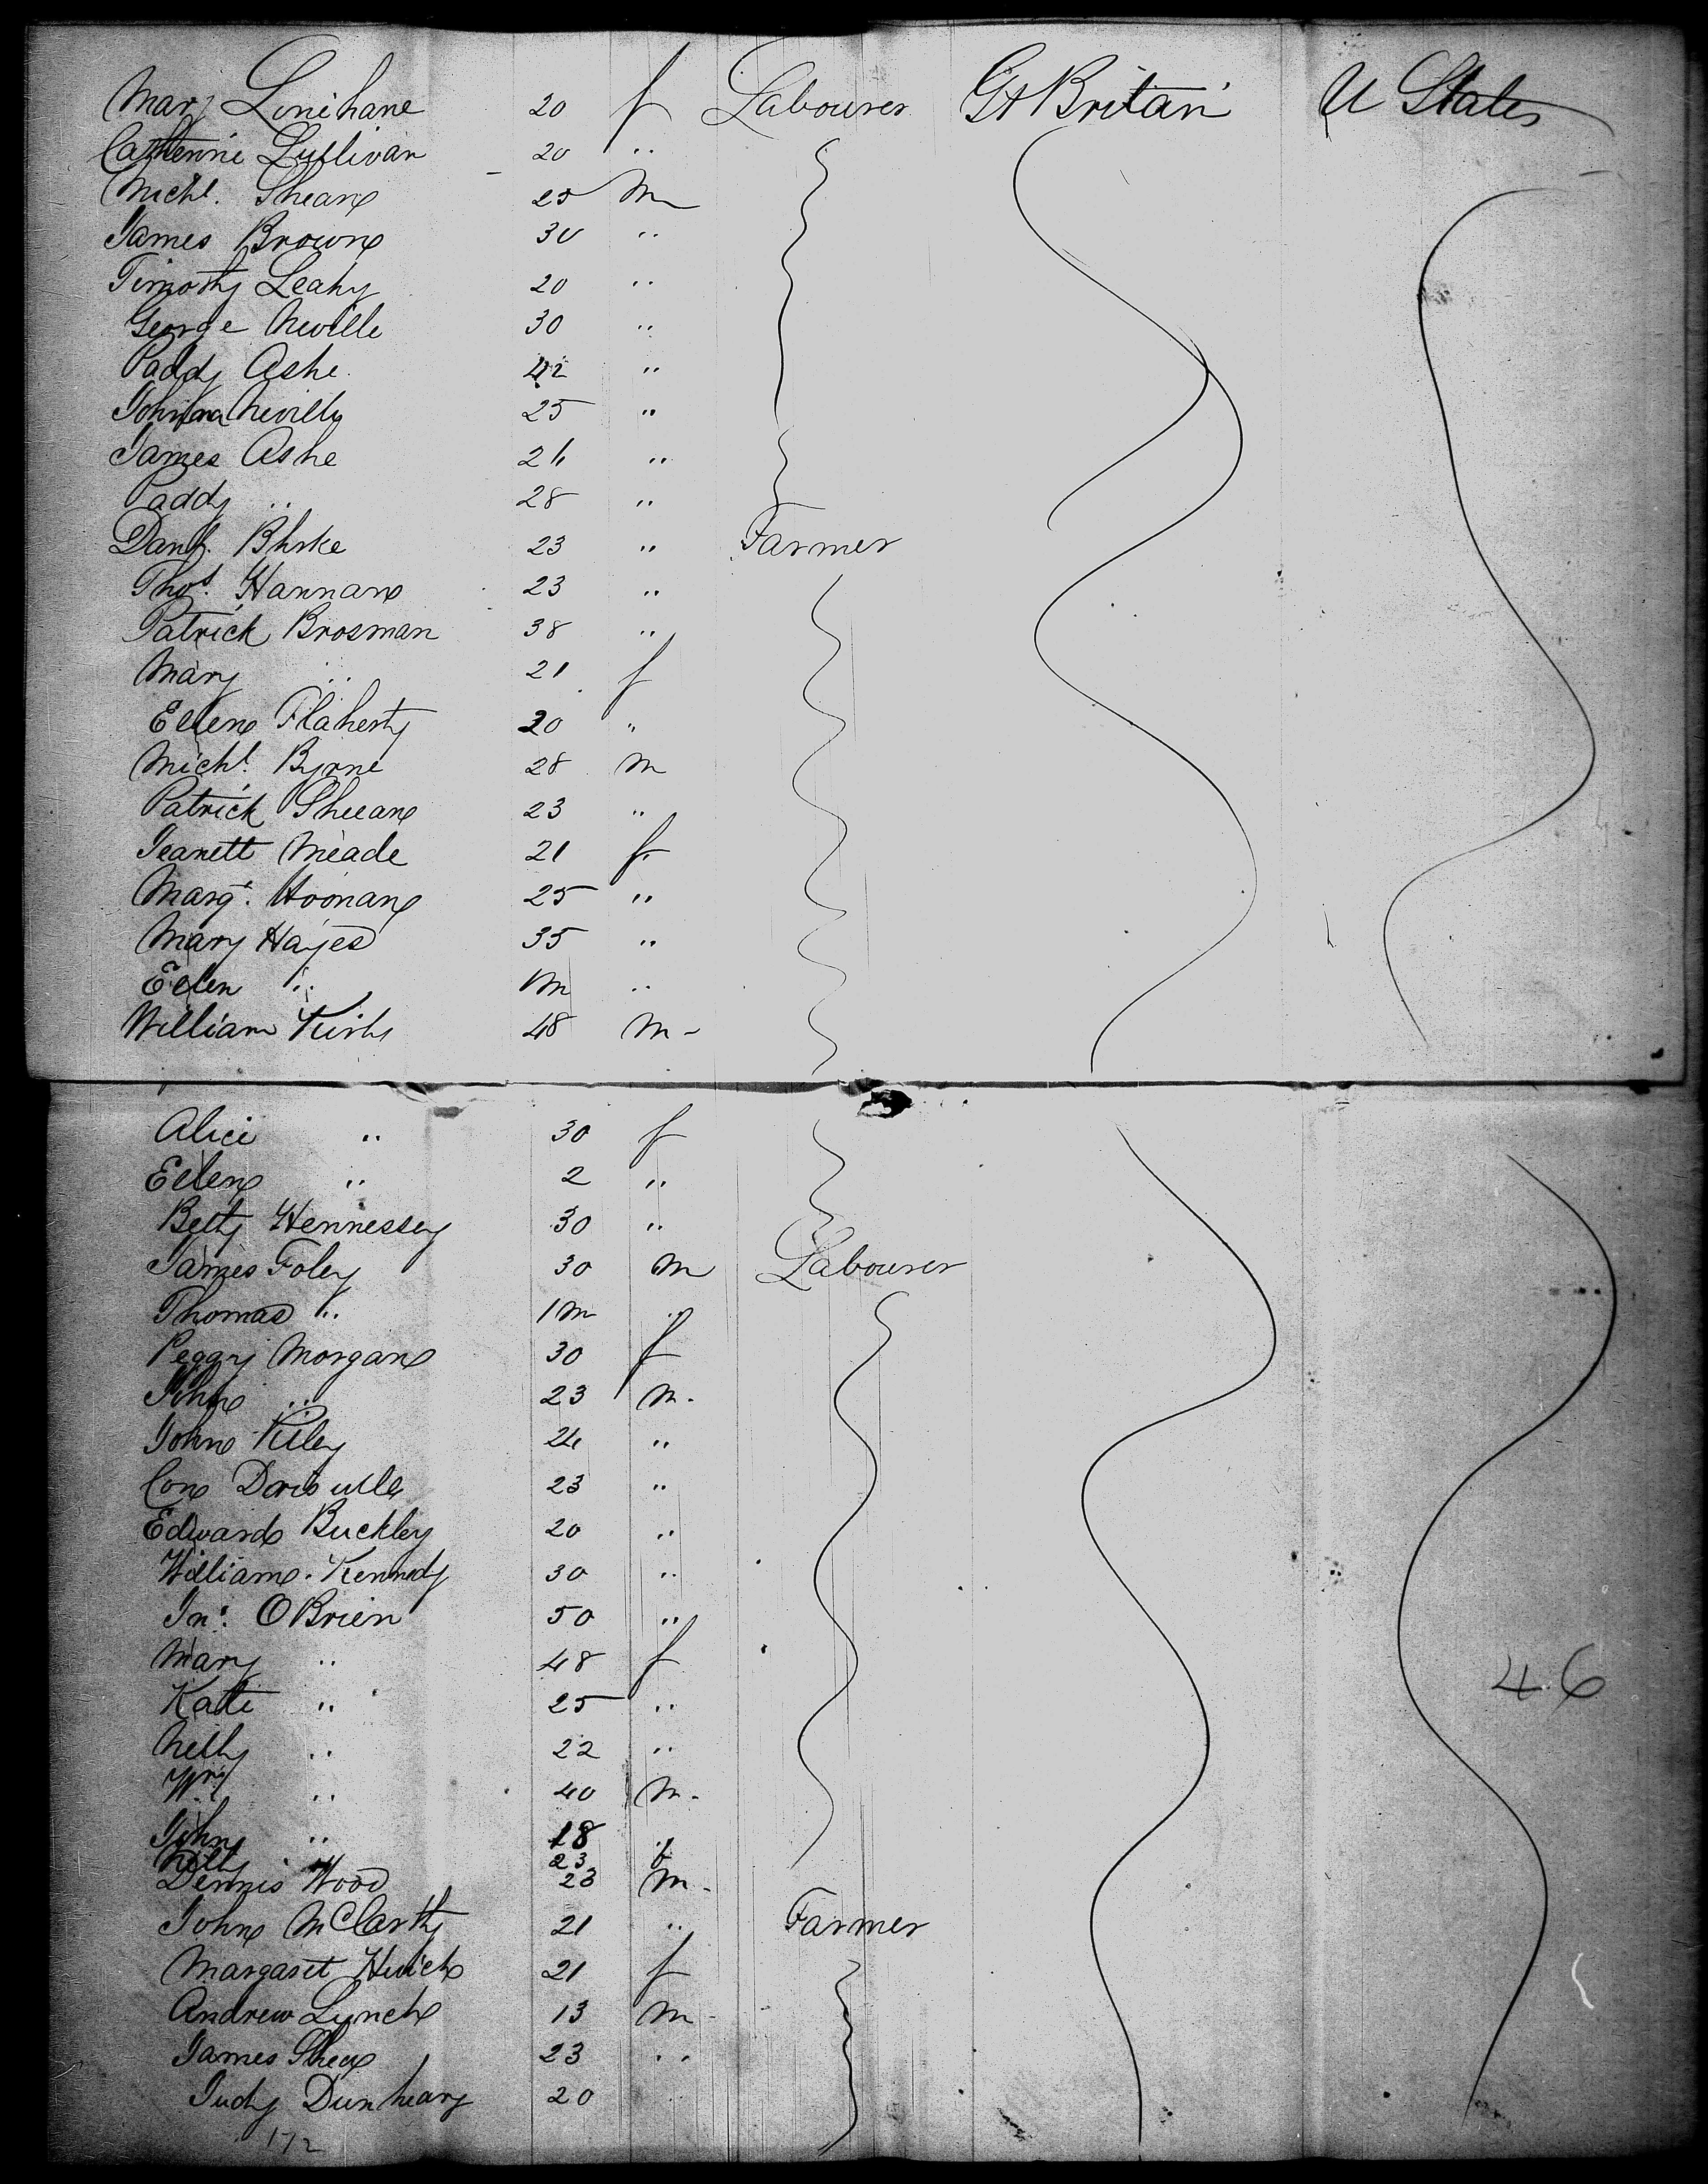 Mary Linihane 20 f Labourer Gt Britain U States
Catherine Sullivan 20 "
Michl. Sheane 25 m
James Browne 30 "
Timothy Leahy 20 "
George Neville 30 "
Paddy Ashe 42 "
Neville 25 "
James Ashe 26 "
Paddy " 28 "
Danl. 23 " Farmer
Thos. Hannane 23 "
Patrick Brosman 38 "
Mary " 21 f
Ellen Flaherty 20 "
Michl. Byrne 28 m
Patrick Sheeane 23 "
Jeanett Meade 21 f
Margt. Noonane 25 "
Mary Hayes 35 "
Ellen " 1m "
William Kirby 48 m
Alice " 30 f
Ellen " 2 "
Betty Hennessey 30 "
James Foley 30 m Labourer
Thomas " 1m "
Peggy Morgane 30 f
John " 23 m
John Riley 24 "
Con 23 "
Edward Buckley 20 "
William Kennedy 30 "
Jno. OBrien 50 "
Mary " 48 f
Kate " 25 "
Nelly " 22 "
Wm " 40 m
John " 18 "
Nelly " 23 f
Dennis Wood 23 m
John McCarthy 21 " Farmer
Margaret 21 f
Andrew Lynch 13 m
James Shea 23 "
Judy Dunheavy 20
172
46